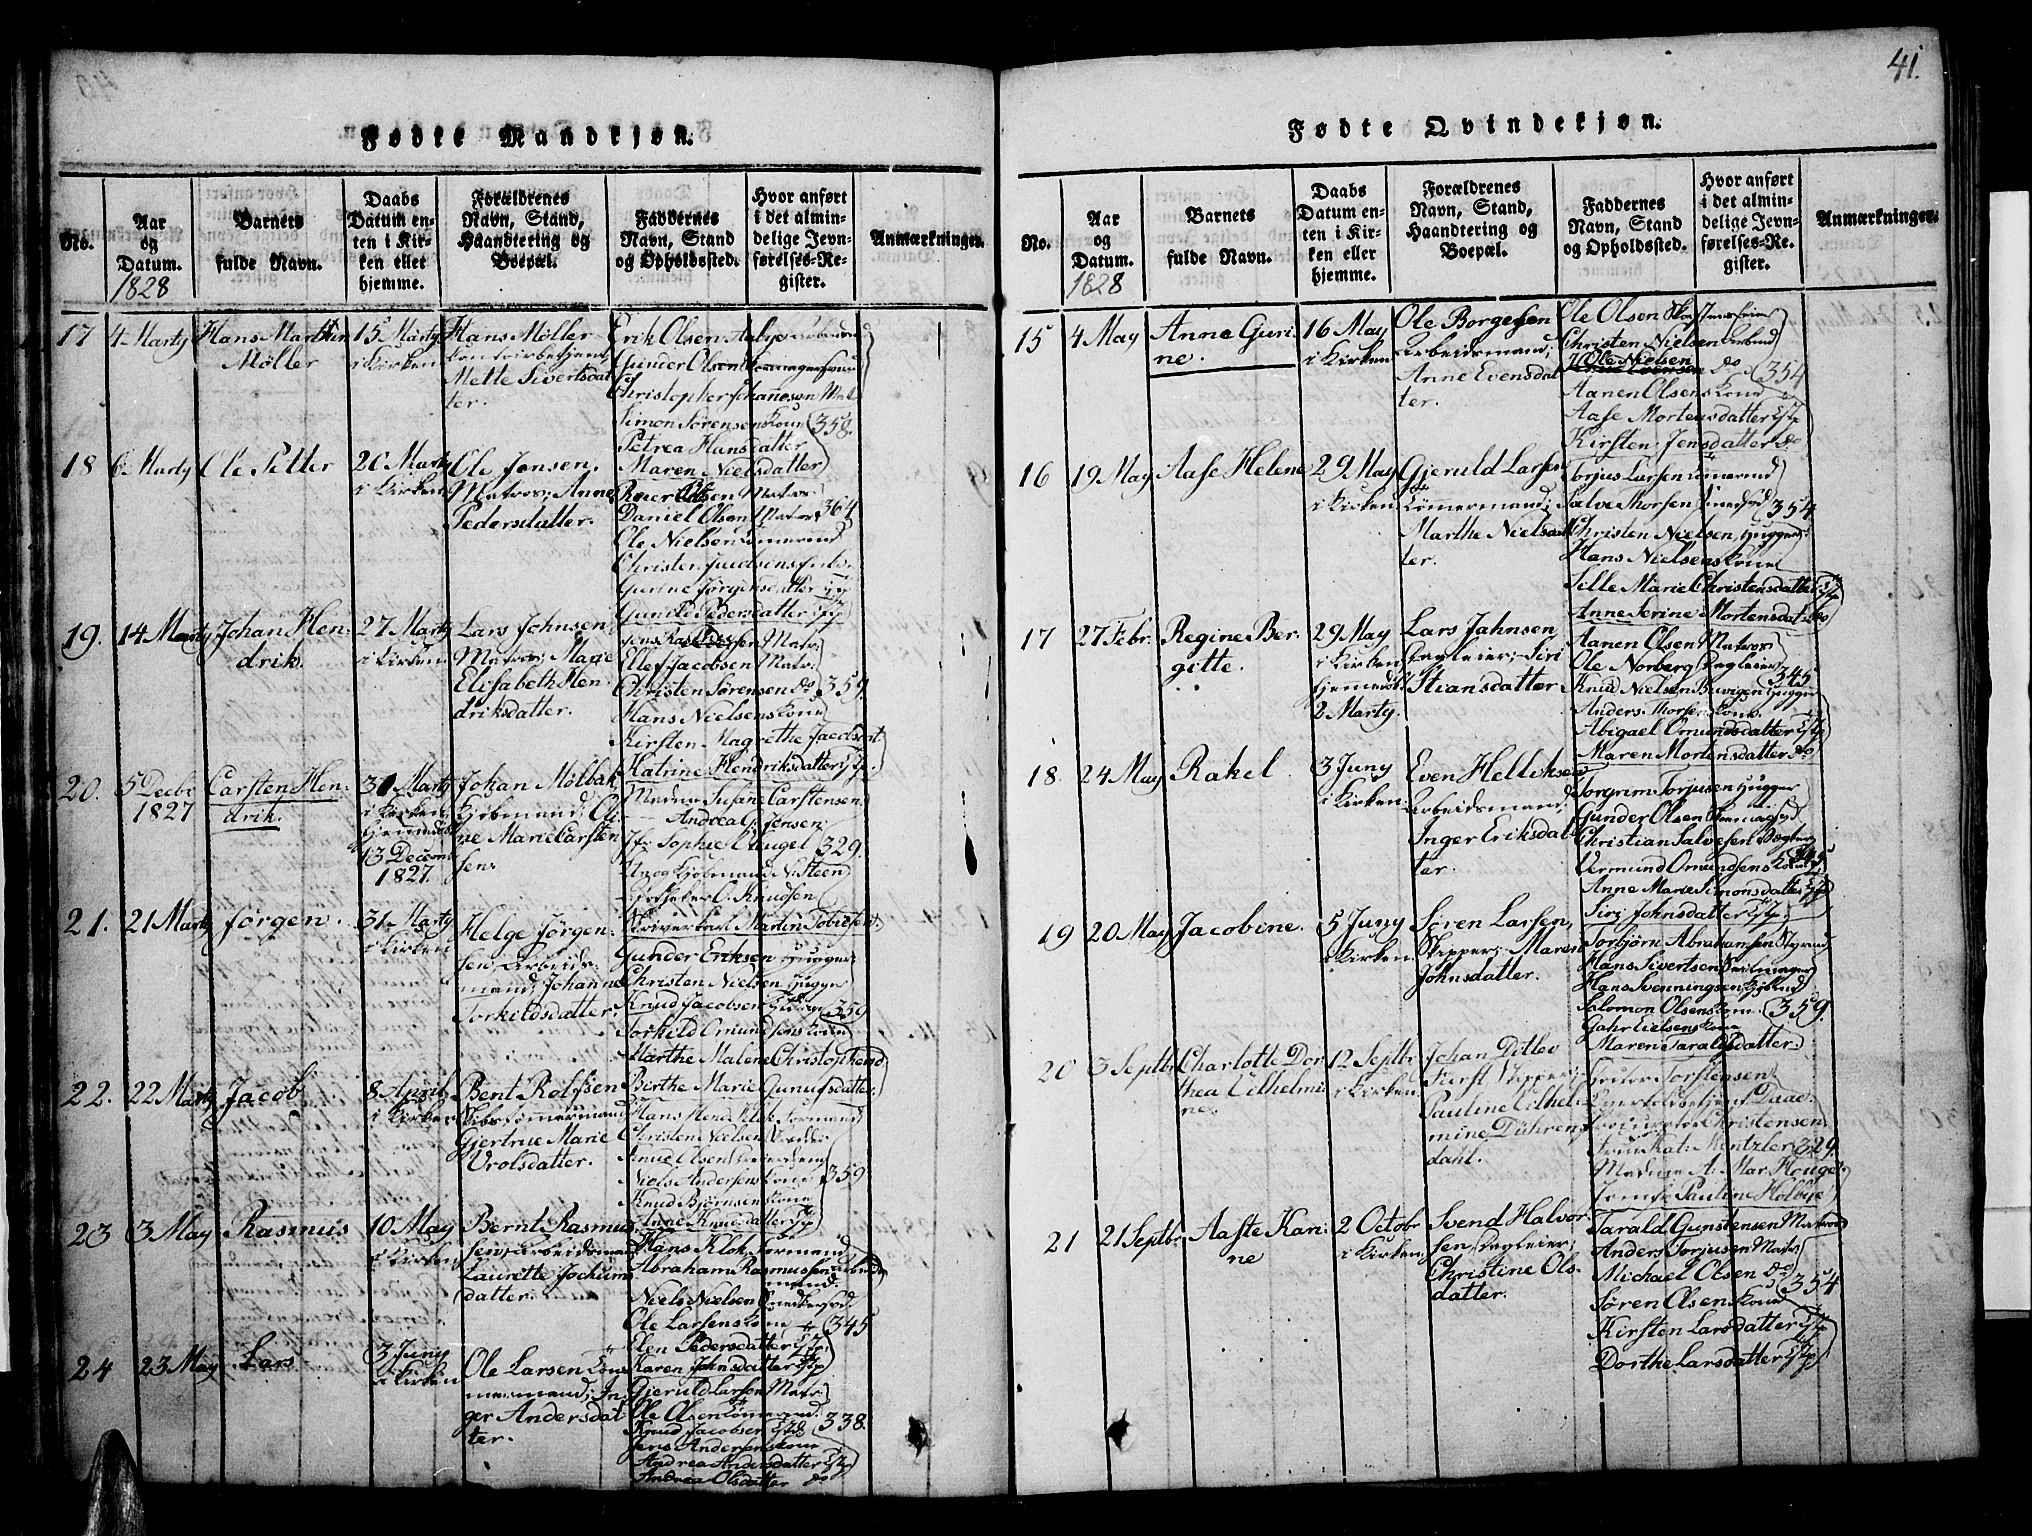 41.
Fødte Mandkjøn.
No.
Aar
og
Datum.
1828
Barnets
fulde Navn.
Daabs
Datum en-
ten i Kir-
ken eller
hjemme.
Forældrenes
Navn, Stand,
Haandtering og
Boepæl.
Faddernes
Navn, Stand
og Opholdssted.
Hvor anført
i det almin-
delige Jevn-
førelses-Re-
gister.
Anmærkninger.
17
4 Marty
Hans Marthin
Møller
15 Marty
i Kirken
Hans Møller
Mette Sivertsdat
ter.
Erik Olsen Aabye
Gunder Olsen
Christopher Johannsen Mat.
Simon Sørensens Kone
Petrea Hansdatter
Maren Nielsdatter
358.
18
6 Marty
Ole Petter
20 Marty
i Kirken
Ole Jensen,
Matros; Anne
Pedersdatter.
Roier Olsen Matros
Daniel Olsen Matros
Ole Nielsen Tømermd
Christen Juulsens Enke
Gurine Jørgensdatter
Gunild Pedersdatter
364
19.
14 Marty
Johan Hen-
drik.
27 Marty
i Kirken
Lars Johnsen
Matros; Marie
Elisabeth Hen
driksdatter.
Ellef Jacobsen Matr.
Christen Sørensen do
Hans Nielsens Kone
Kirsten Magrethe Jacobsdat.
Katrine Hendriksdatter
359.
20.
5 Decbr
1827
Carsten Hen-
drik.
31 Marty
i Kirken
hjemmedøbt
13 Decemb
1827.
Johan Mølbak,
Kjøbmand; Oli
ne Marie Carsten
sen.
Madme Susane Carstensen
Andrea G. Jensen
Jfr Sophie Krugel
Kjøbmand N. Steen
O. Knudsen
Martin Tobiesen
329.
21.
21 Marty
Jørgen.
31 Marty
i Kirken
Helge Jørgen-
sen Arbeids-
mand; Johanne
Torkildsdatter.
Gunder Eriksen Hugger
Christen Nielsen Hugger
Knud Jacobsen
Torkild Omundsens Kone
Marthe Malene Christophersd
Berthe Marie Gunufsdatter
359
22.
22 Marty
Jacob
8 April
i Kirken
Bent Rolfsen
Skibstømmermand
Gjertrue Marie
Vrolsdatter.
Hans Hend. Klok Formand
Christen Nielsen
Niels Andersens Kone
Knud Bjørnsens Kone
Anne Knudsdatter
359
23
3 May
Rasmus
10 May
i Kirken
Bernt Rasmus
sen, Arbeidsman
Laurette Jochums
datter.
Hans Klok, Formand
Abraham Rasmussen Arbeids
mand.
Niels Nielsen
Ole Larsens Kone
Elen Pedersdatter
Karen Johnsdatter
345
24
23 May
Lars
3 Juny
i Kirken
Ole Larsen Tøm
mermand; In
ger Andersdat
ter.
Gjeruld Larsen Matr.
Ole Olsen Tømermd.
Knud Jacobsen
Jens Andersens Kone
Andrea Andersdatter
Andrea Olsdatter do
338.
Fødte Qvindekjøn.
No.
Aar
og
Datum.
1828
Barnets
fulde Navn.
Daabs
Datum en-
ten i Kir-
ken eller
hjemme.
Forældrenes
Navn, Stand,
Haandtering og
Boepæl.
Faddernes
Navn, Stand
og Opholdssted.
Hvor anført
i det almin-
delige Jevn-
førelses-Re-
gister.
Anmærkninger.
15
4 May
Anne Guri-
ne.
16 May
i Kirken
Ole Borgersen
Arbeidsmand;
Anne Evensdat
ter.
Ole Olsen
Christen Nielsen Arbmd
Ole Nielsen do
Aanen Olsens Kone
Aase Mortensdatter
Kirsten Jensdatter do
354
16
19 May
Aase Helene
29 May
i Kirken
Gjeruld Larsen
Tømermand;
Marthe Nielsdat
ter.
Torjus Larsen Tømermd
Salve Thorsen Smedsvd
Christen Nielsen, Hugger
Hans Nielsens Kone
Sille Marie Christensdatter
Anne Serine Mortensdat. do
354
17
27 Febr.
Regine Ber-
gitte.
29 May
i Kirken
hjemmedøbt
2 Marty.
Lars Jahnsen,
Dagleier; Siri
Stiansdatter
Aanen Olsen Matros
Ole Norberg Dagleier
Knud Nielsen Buvigen Hugger
Anders Thorsens Kone
Abigael Omundsdatter
Maren Mortensdatter do
345
18.
24 May
Rakel
3 Juny
i Kirken
Even Helliksen
Arbeidsmand;
Inger Eriksdat
ter.
Torgrim Torjusen Hugger
Gunder Olsen
Christian Salvesen
Vermund Omundsens Kone
Anne Marie Simonsdatter
Siri Johnsdatter
345
19
20 May
Jacobine.
5 Juny
i Kirken
Søren Larsen,
Skipper; Maren
Johnsdatter.
Torbjørn Abrahamsen Styrmd
Hans Sivertsen Seilmager
Hans Svenningsen
Salomon Olsens Kone
Gahr Eielsens Kone
Maren Taraldsdatter
359.
20
3 Septbr
Charlotte Dor
thea Vilhelmi
ne.
12 Septbr
i Kirken
Johan Ditlev
Fürst Skipper;
Pauline Vilhel-
mine Dühren
dahl.
Torstensen
Daae
Christensen
Frue Kat. Mintzler
Madme A. Mar. Kruge
Jomfr Pauline Holbye
329.
21
21 Septbr.
Aaste Kari-
ne
2 Octobr
i Kirken
Svend Halvor
sen, Dagleier;
Christine Ols-
datter.
Tarald Gunstensen Matros
Anders Torjusen Matr.
Michael Olsen do
Søren Olsens Kone
Kirsten Larsdatter
Dorthe Larsdatter
354